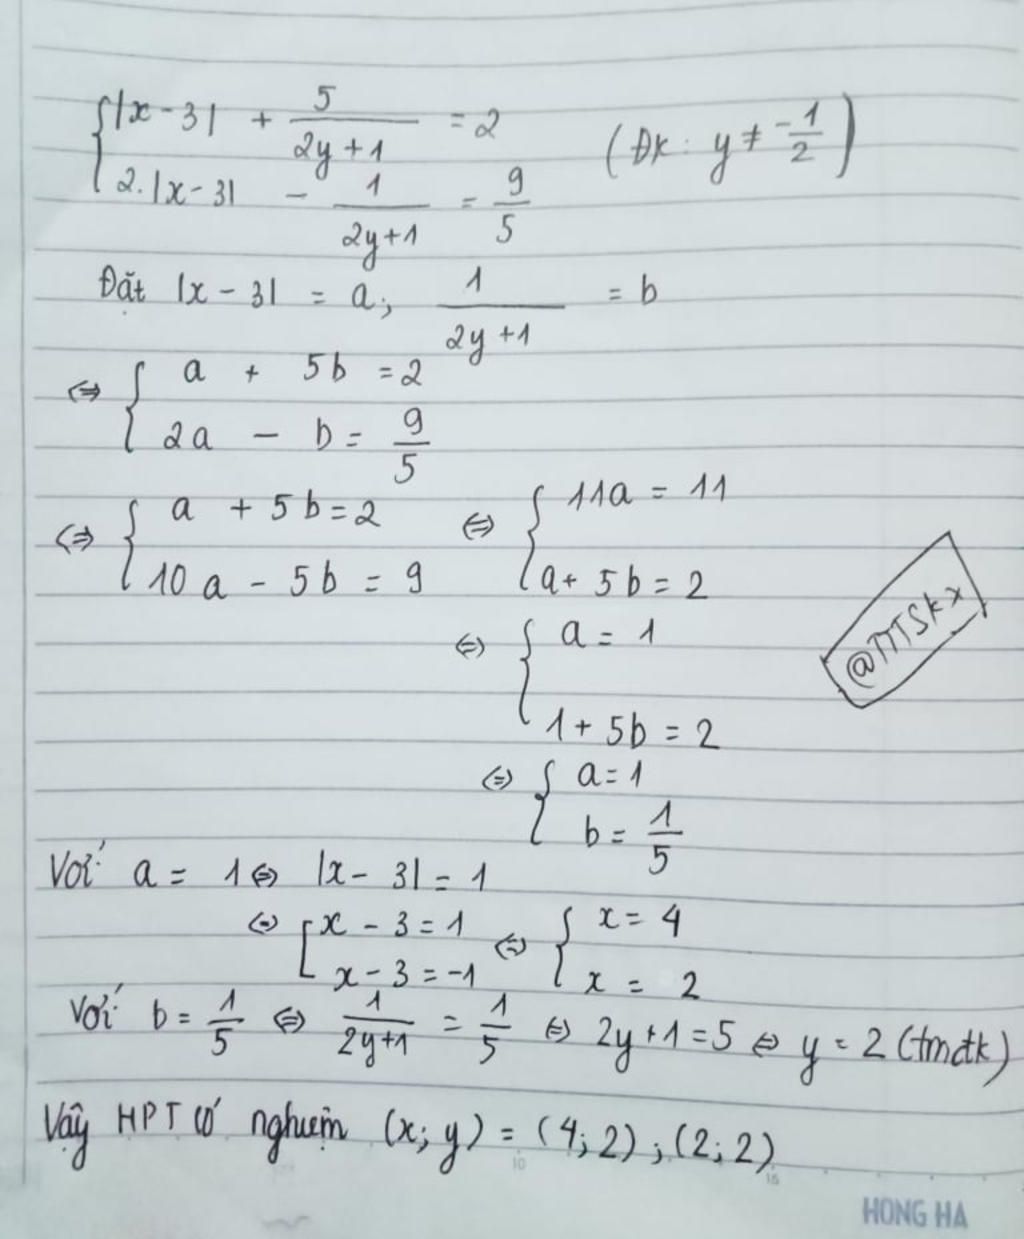 { |x-3| + 5/(2y+1) = 2 (Đk: y ≠ -1/2)
2.|x-3| - 1/(2y+1) = 9/5
Đặt |x-3| = a; 1/(2y+1) = b
⇔ { a + 5b = 2
2a - b = 9/5
⇔ { a + 5b = 2 ⇔ { 11a = 11
10a - 5b = 9 a + 5b = 2
@TTTSkx
⇔ { a = 1
1 + 5b = 2
⇔ { a = 1
b = 1/5
Với a = 1 ⇔ |x-3| = 1
⇔ [ x - 3 = 1 ⇔ { x = 4
x - 3 = -1 x = 2
Với b = 1/5 ⇔ 1/(2y+1) = 1/5 ⇔ 2y+1 = 5 ⇔ y = 2 (tmđk)
Vậy HPT có nghiệm (x; y) = (4; 2); (2; 2)
10
15
HONG HA